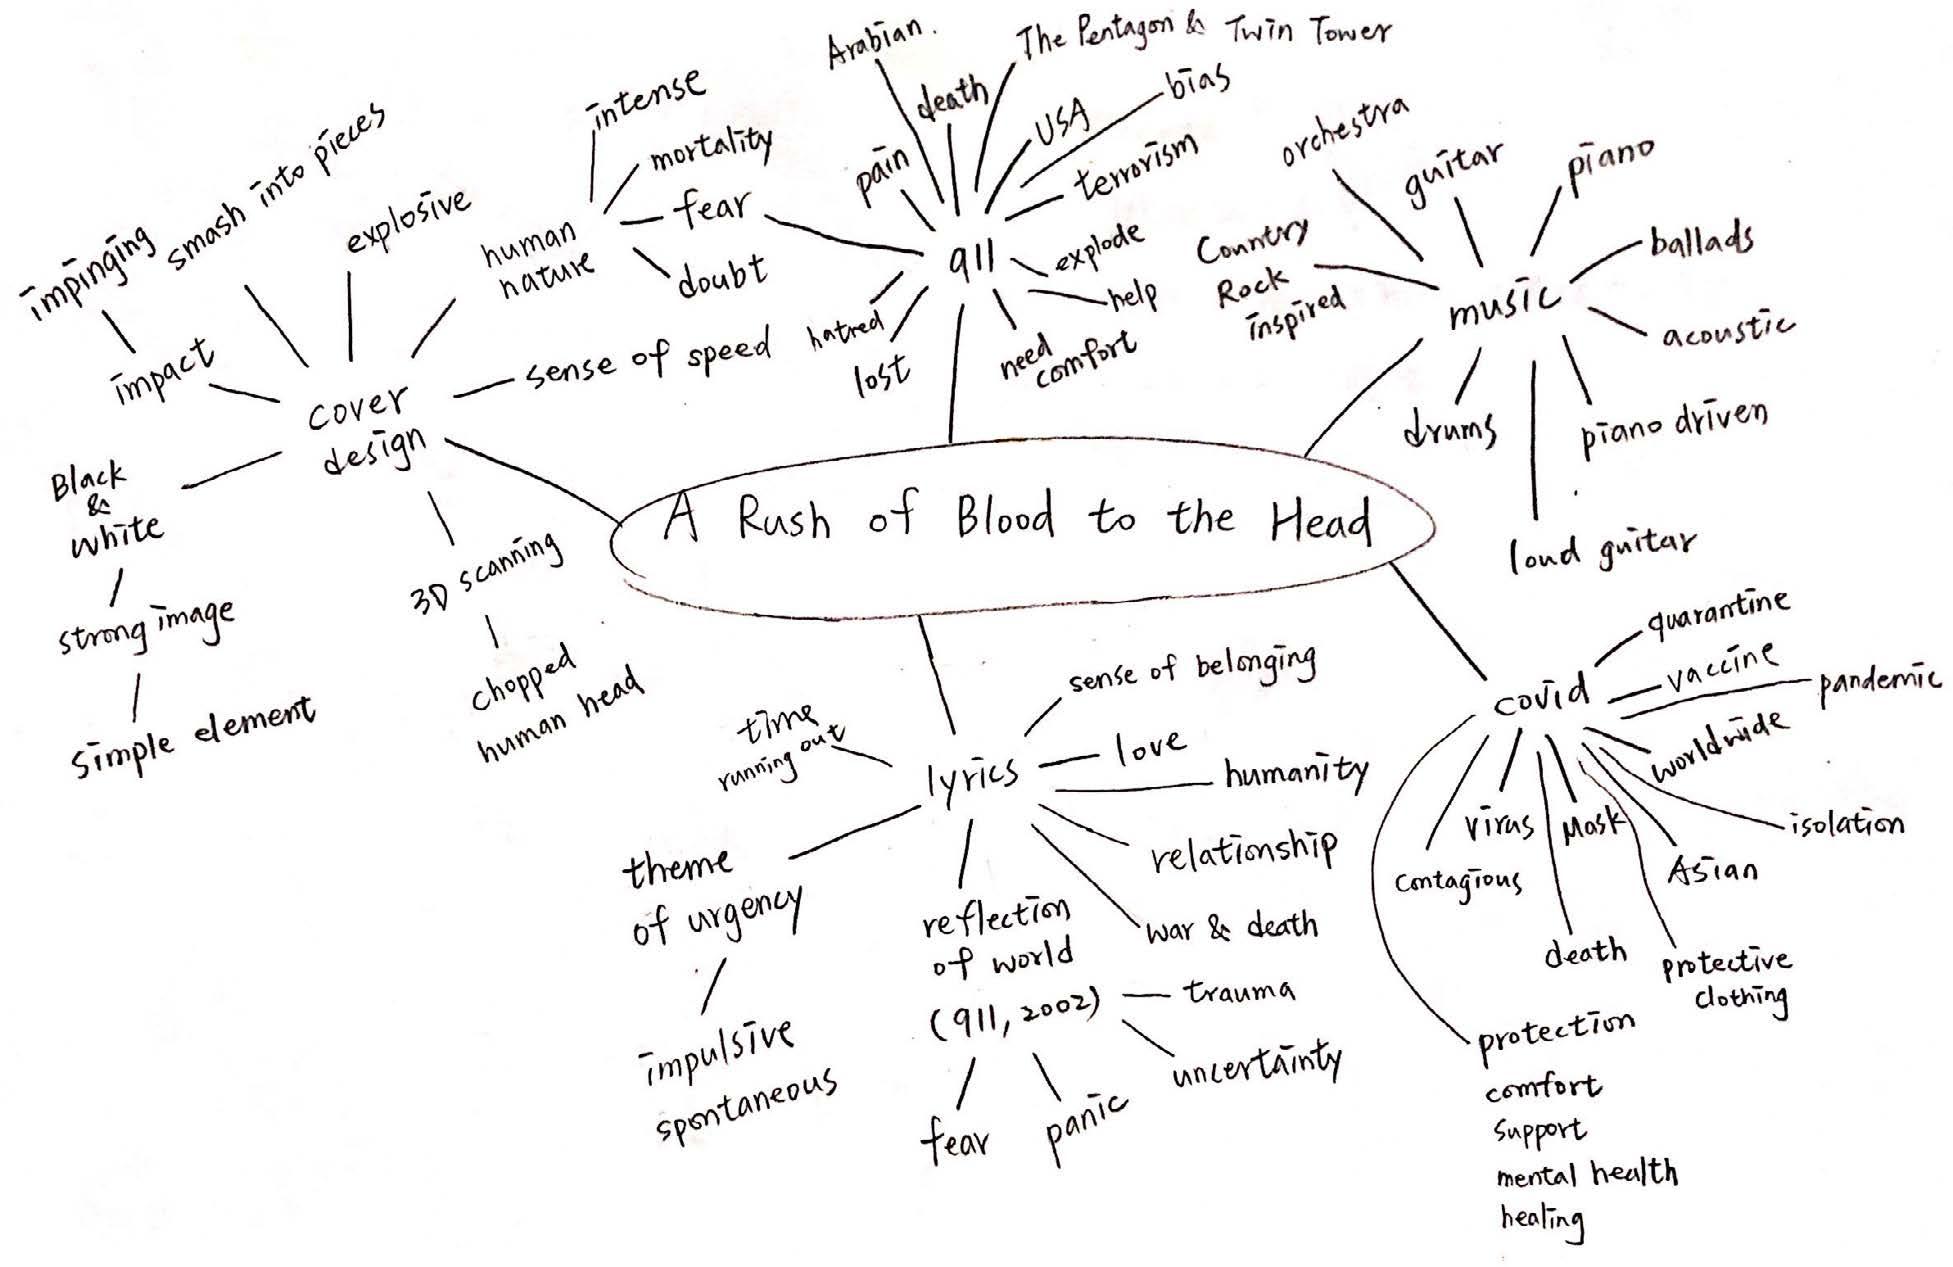 A Rush of Blood to the Head
cover
design
impact
impinging
smash into pieces
explosive
human
nature
intense
mortality
fear
doubt
sense of speed
Black
&
white
strong image
simple element
3D scanning
chopped
human head
911
Arabian.
death
The Pentagon & Twin Tower
pain
USA
bias
terrorism
explode
help
need
comfort
lost
hatred
music
orchestra
guitar
piano
ballads
acoustic
piano driven
loud guitar
drums
Country
Rock
inspired
covid
quarantine
vaccine
pandemic
worldwide
isolation
Asian
protective
clothing
Mask
death
virus
contagious
protection
comfort
support
mental health
healing
lyrics
sense of belonging
love
humanity
relationship
war & death
reflection
of world
(911, 2002)
trauma
uncertainty
panic
fear
theme
of urgency
impulsive
spontaneous
time
running out